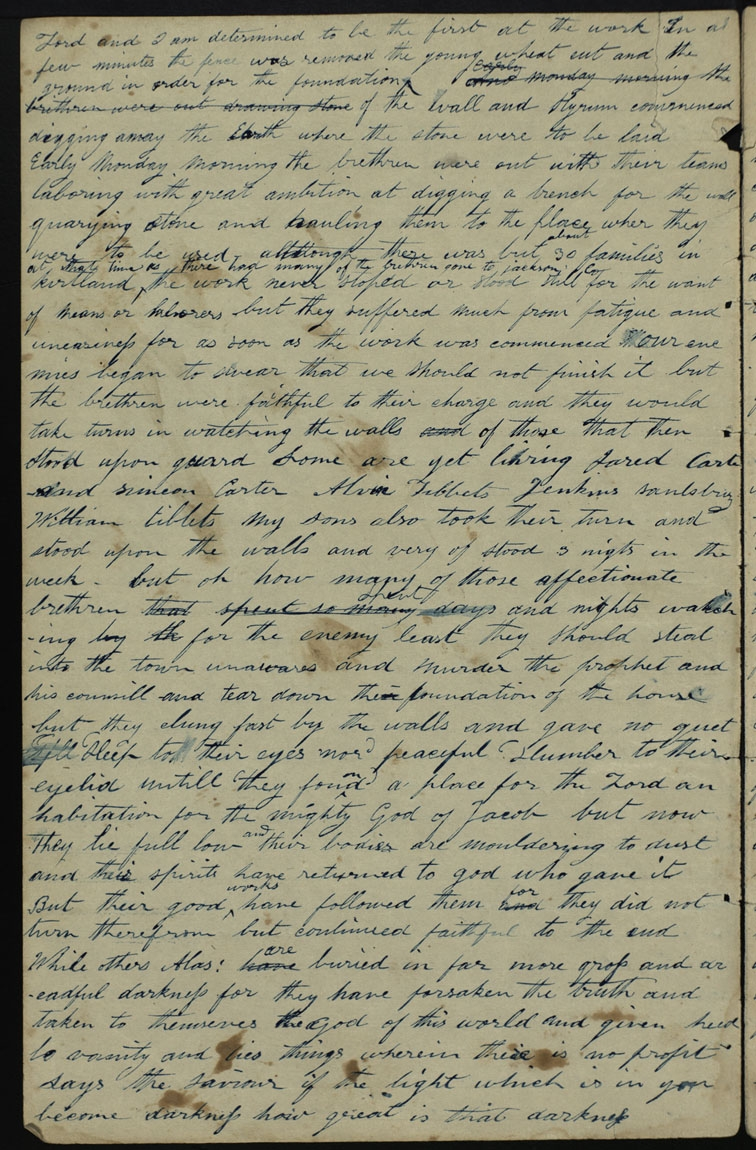 Lord and I am determined to be the first at the work In a
few minutes the fence was removed the young wheat cut and the
ground in order for the foundation early and monday morning the
brethren were out drawing stone of the wall and Hyrum commenced
digging away the Earth where the stone were to be laid
Early Monday Morning the brethren were out with their teams
laboring with great ambition at digging a trench for the wall
quarying stone and hauling them to the place wher they
were to be used although there was but about 30 families in
at that time as there had many of the brethren gone to Jackson Co
kirtland the work never stoped or stood still for the want
of means or laborers but they suffered much from fatigue and
uneasiness for as soon as the work was commenced our ene
mies began to swear that we should not finish it but
the brethren were faithful to their charge and they would
take turns in watching the walls and of those that then
stood upon guard some are yet living Jared Carte
and simeon Carter Alvin Tibbets Jenkins saulsbury
William tiblets My sons also took their turn and
stood upon the walls and very of stood 3 nigts in the
week - but oh how many of those affectionate
brethren that spent so many spent days and nights watch
-ing by th for the enemy least they should steal
into the town unawares and murder the prophet and
his counsill and tear down the foundation of the house
but they clung fast by the walls and gave no quet
Sleep to their eyes nor peaceful Slumber to their
eyelid untill they found a place for the Lord an
habitation for the mighty God of Jacob but now
They lie full low and their bodies are mouldering to dust
and their spirits have returned to god who gave it
But their good works have followed them and for they did not
turn therefrom but continued faithful to the end
While others Alas! have are buried in far more gross and dr
-eadful darkness for they have forsaken the truth and
taken to themseves the god of this world and given heed
to vanity and lies things wherein there is no profit
says the saviour if the light which is in you
become darkness how great is that darkness